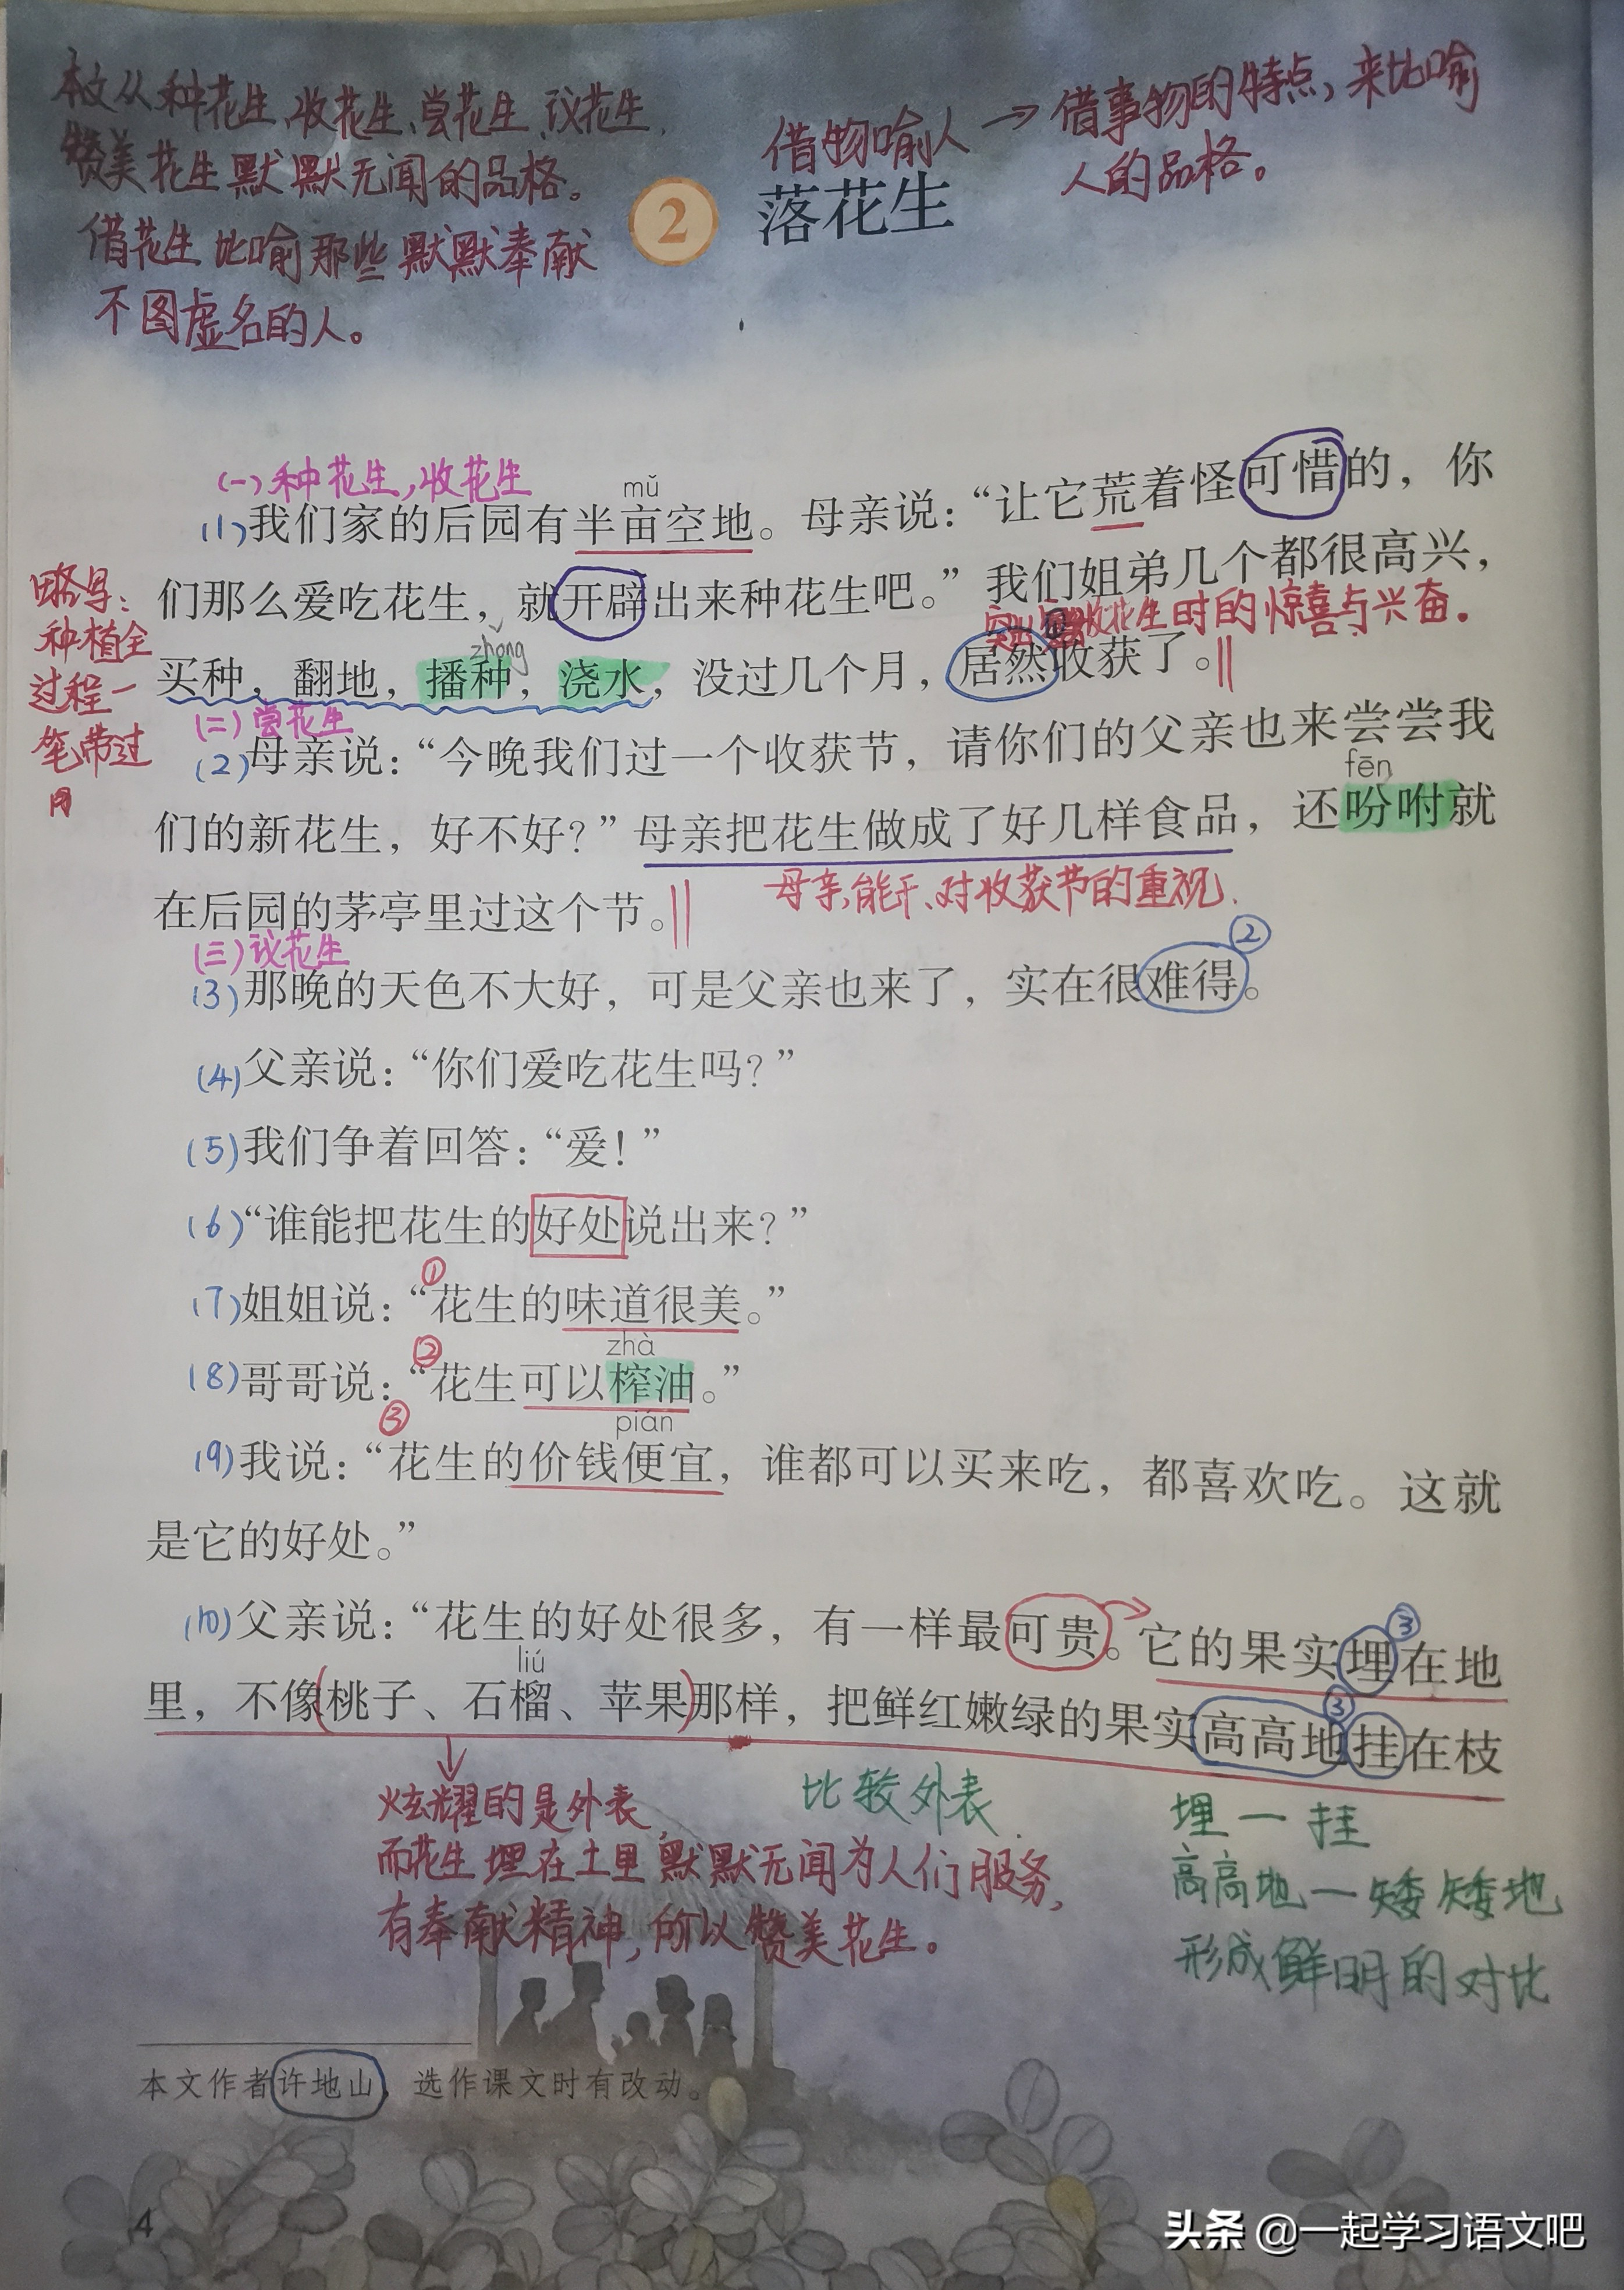 本文从种花生、收花生、尝花生、议花生,
赞美花生默默无闻的品格。
借花生比喻那些默默奉献
不图虚名的人。
借物喻人→借事物的特点,来比喻
人的品格。
2 落花生
(一)种花生,收花生
mǔ
(1)我们家的后园有半亩空地。母亲说:“让它荒着怪可惜的,你
们那么爱吃花生,就开辟出来种花生吧。”我们姐弟几个都很高兴,
收花生时的惊喜与兴奋。
zhǒng
买种,翻地,播种,浇水,没过几个月,居然收获了。
略写:
种植全
过程一
笔带过
(二)尝花生
(2)母亲说:“今晚我们过一个收获节,请你们的父亲也来尝尝我
fēn
们的新花生,好不好?”母亲把花生做成了好几样食品,还吩咐就
母亲能干、对收获节的重视.
在后园的茅亭里过这个节。
(三)议花生
②
(3)那晚的天色不大好,可是父亲也来了,实在很难得。
(4)父亲说:“你们爱吃花生吗?”
(5)我们争着回答:“爱!”
(6)“谁能把花生的好处说出来?”
①
(7)姐姐说:“花生的味道很美。”
② zhà
(8)哥哥说:“花生可以榨油。”
③ pián
(9)我说:“花生的价钱便宜,谁都可以买来吃,都喜欢吃。这就
是它的好处。”
③
(10)父亲说:“花生的好处很多,有一样最可贵。它的果实埋在地
liú ③
里,不像(桃子、石榴、苹果)那样,把鲜红嫩绿的果实高高地挂在枝
炫耀的是外表,
而花生埋在土里默默无闻为人们服务,
有奉献精神,所以赞美花生。
比较外表.
埋一挂
高高地一矮矮地
形成鲜明的对比
本文作者许地山,选作课文时有改动。
4
头条 @一起学习语文吧